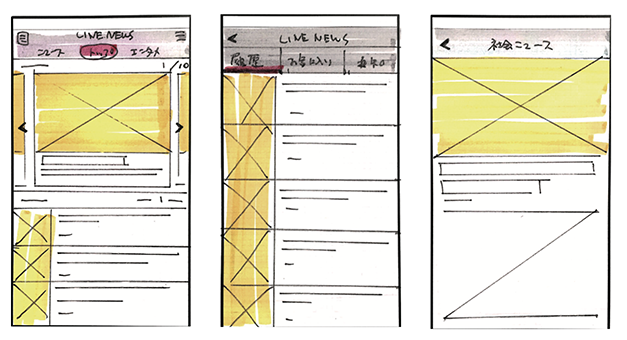 LINE NEWS
ニュース トップ エンタメ
1/10
LINE NEWS
履歴 お気に入り お知らせ
社会ニュース